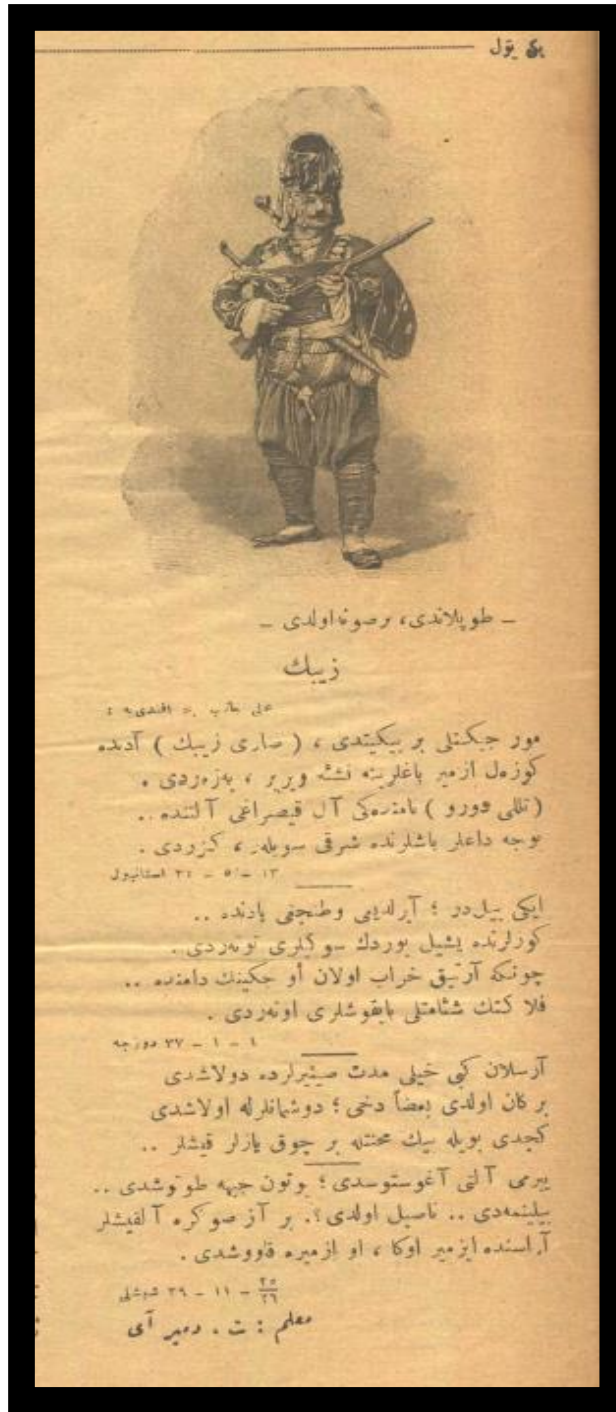 یکی یول
ـ طوپلاندی، بر صوڭا اولدی ـ
زیبك
علی افندی‌یه :
مور جپكنلی بر ییكیتدی ، ( صاری زیبك ) آدنده
كوزه‌ل ازمیر باغلرینه نشئه ویریر ، یه‌زه‌ردی .
( تللی دورو ) نامنده‌كی آل قیصراغی آلتنده ..
یوجه داغلر باشلرنده شرقی سویلر ، كزردی .
استانبول
ایكی ییلدر ؛ آیرلدیغی وطنجغی یادنده ..
كوزلرنده یشیل یوردك سوكیلری توته‌ردی .
چونكه آرتیق خراب اولان أو جكینك دامنده ..
فلاكتك شئامتلی بایقوشلری اوته‌ردی .
١ ـ ١ ـ ٣٧ دوزجه
آرسلان كبی خیلی مدت سیپرلرده دولاشدی
بركان اولدی بعضاً دخی ؛ دوشمانلرله اولاشدی
كچدی بویله بیك محنتله بر چوق یازلر قیشلر ..
ییرمی آلتی آغوستوسدی ؛ بوتون جبهه طوتوشدی ..
بیلینمه‌دی .. ناصیل اولدی ؟. بر آز صوكره آلقیشلر
آراسنده ایزمیر اوكا ، او ازمیره قاووشدی .
٢٥/٢٦ ـ ١١ ـ ٣٩ شیشلی
معلم : ت . دمیر آی